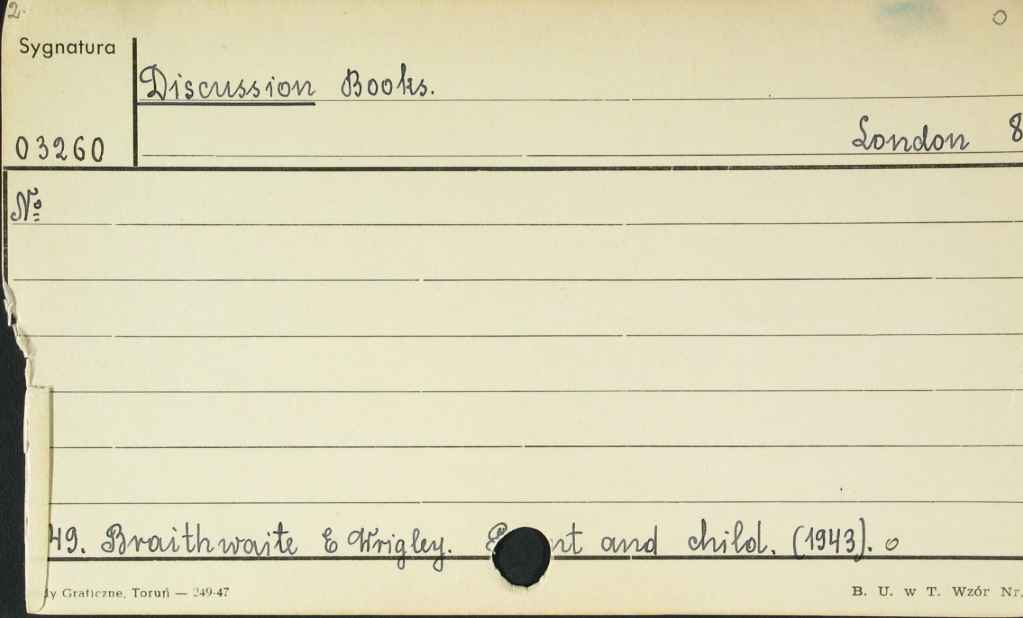 2.
Sygnatura
Discussion Books.
03260
London 8
№
49. Braithwaite E Wrigley. and child. (1943). o
Graficzne, Toruń — 249-47
B. U. w T. Wzór Nr.